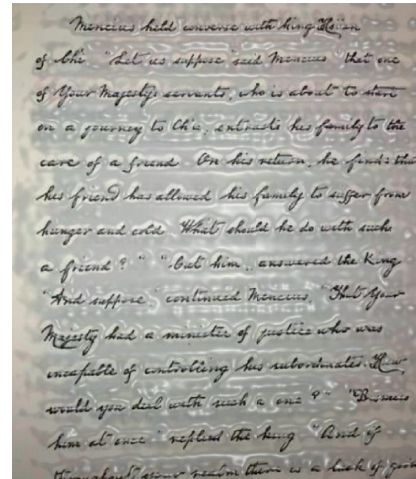 Mencius held converse with King Hsüan
of Ch'i. "Let us suppose" said Mencius "that one
of Your Majesty's servants, who is about to start
on a journey to Ch'u, entrusts his family to the
care of a friend. On his return, he finds that
his friend has allowed his family to suffer from
hunger and cold. What should he do with such
a friend?" "Cut him, answered the King
"And suppose" continued Mencius, "that Your
Majesty had a minister of justice who was
incapable of controlling his subordinates. How
would you deal with such a one?" "Dismiss
him at once" replied the king "And if
throughout your realm there is a lack of good